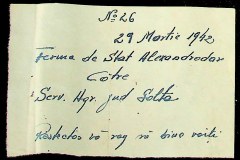 No 26
29 Martie 1942
Ferma de Stat Alexandrodar
Către
Serv. Agr. jud Balta
Respectos vă rog să bine voiți